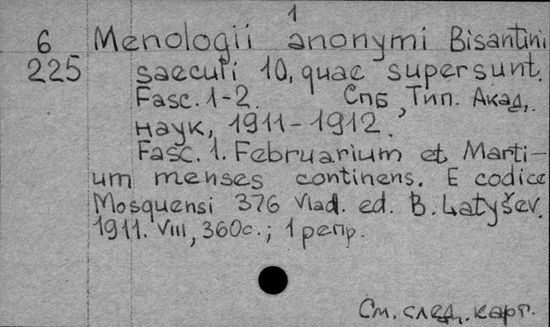 1
6 Menologii anonymi Bisantini
225 saeculi 10, quae supersunt.
Fasc. 1-2. Спб, Тип. Акад.
наук, 1911-1912.
Fasc. 1. Februarium et Marti-
um menses continens. E codice
Mosquensi 376 Vlad. ed. B. Latyšev.
1911. VIII, 360с.; 1 репр.
См. след. карт.